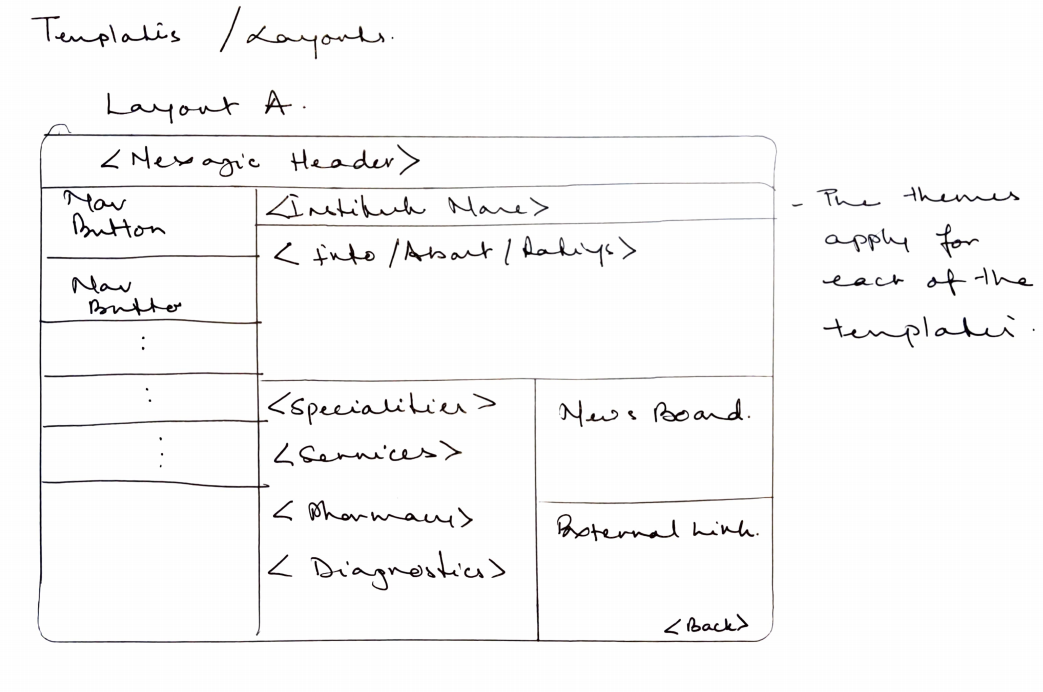 Templates / Layouts.
Layout A.
<Messagic Header>
Nav
Button
Nav
Button
:
:
⋮
<Institute Name>
< Info / About / Ratings>
<Specialities>
<Services>
< Pharmacy>
< Diagnostics>
News Board.
External Link.
<Back>
- The themes
apply for
each of the
templates.